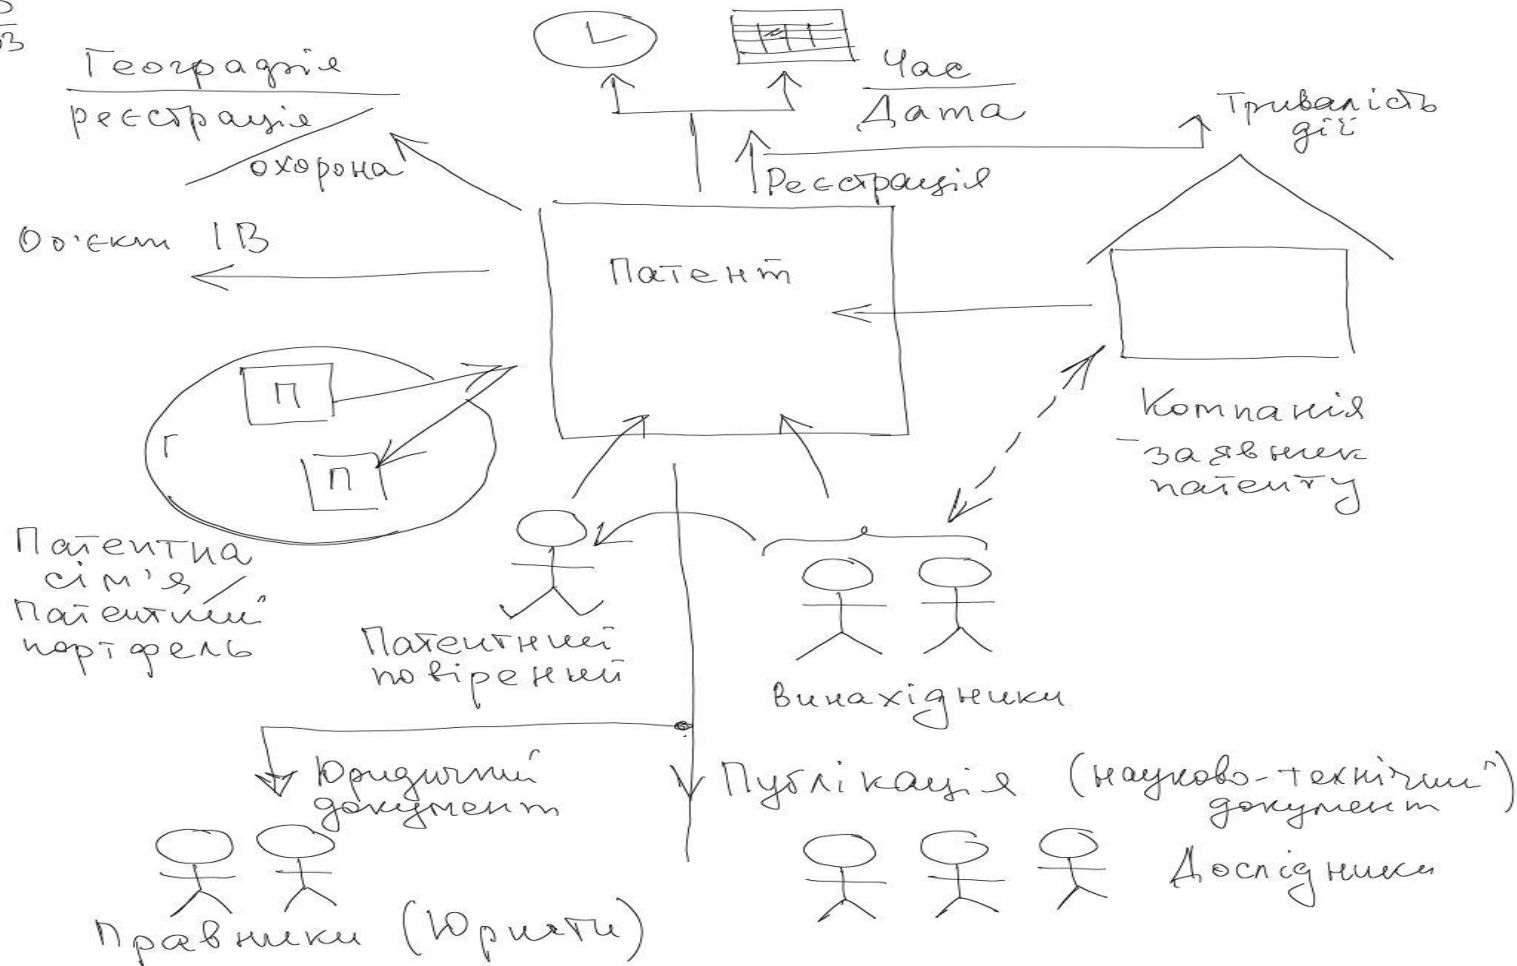 Географія
реєстрація
охорона
Час
Дата
Тривалість
дії
Реєстрація
Об'єкт ІВ
Патент
П
Г
П
Компанія
заявник
патенту
Патентна
сім'я /
Патентний
портфель
Патентний
повірений
Винахідники
Юридичний
документ
Публікація (науково-технічний
документ)
Дослідники
Правники (Юристи)